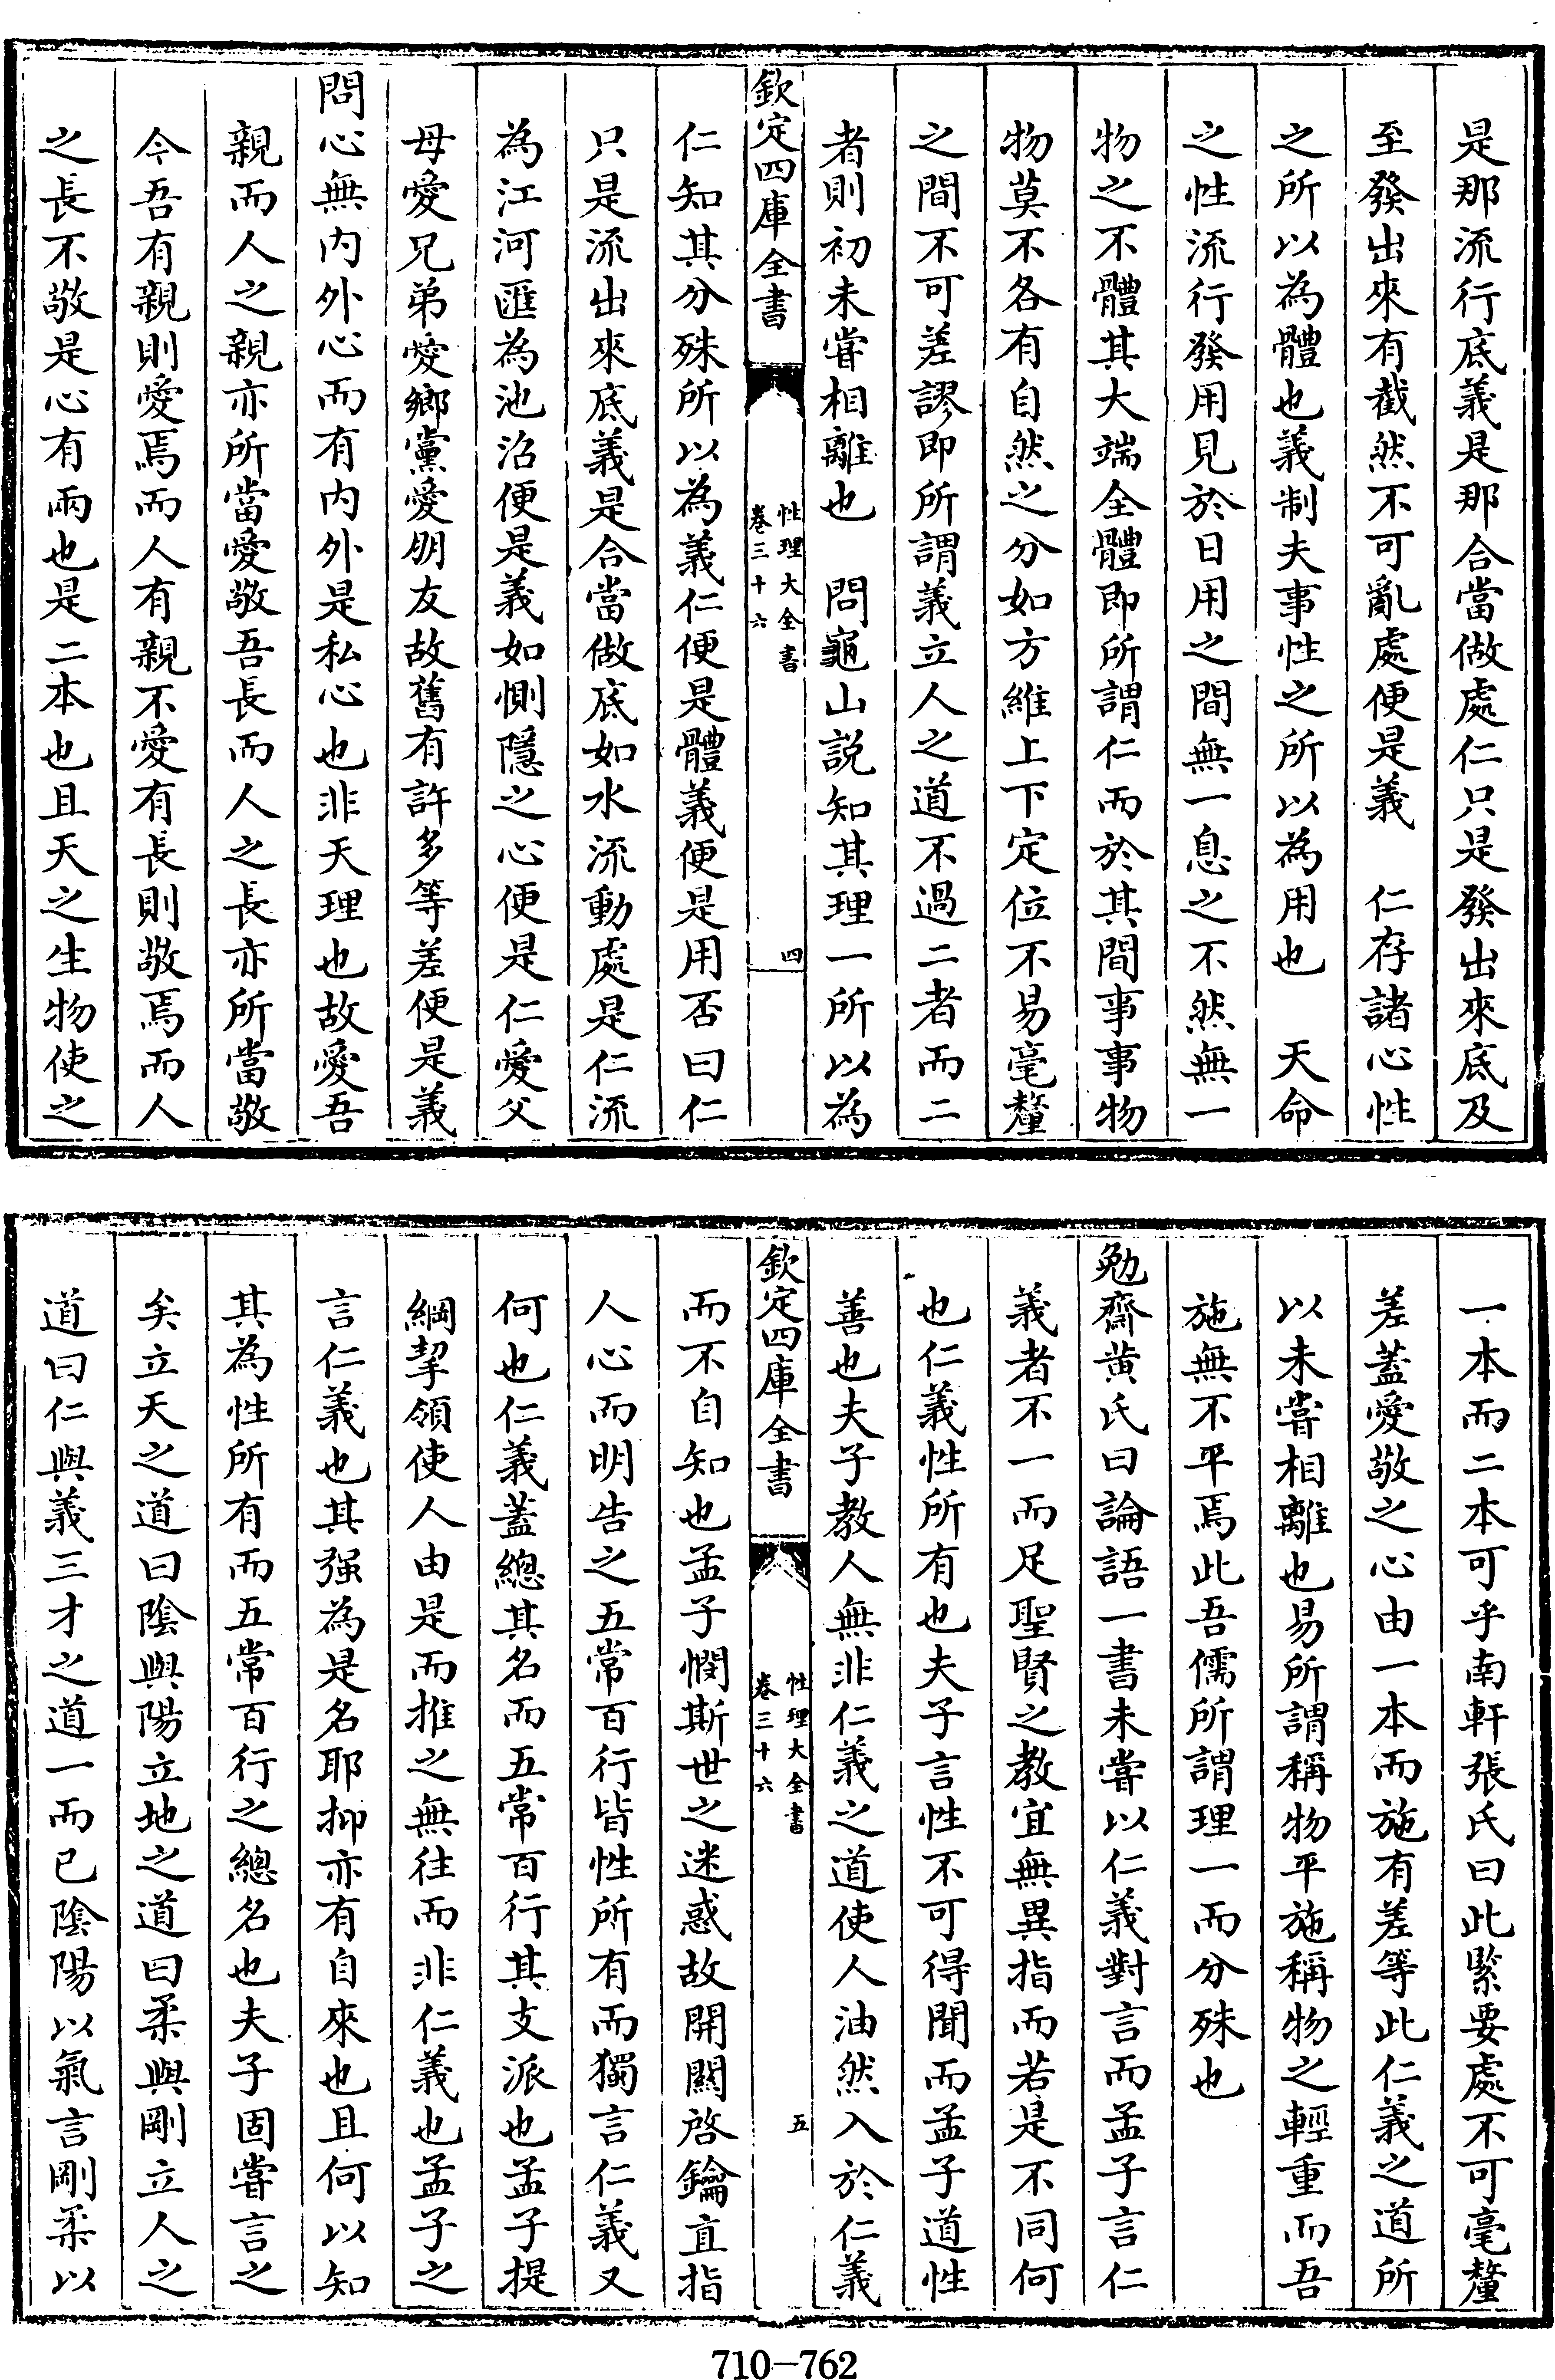 是那流行底義是那合當做處仁只是發出來底及
至發出來有截然不可亂處便是義　仁存諸心性
之所以為體也義制夫事性之所以為用也　天命
之性流行發用見於日用之間無一息之不然無一
物之不體其大端全體即所謂仁而於其間事事物
物莫不各有自然之分如方維上下定位不易毫釐
之間不可差謬即所謂義立人之道不過二者而二
者則初未嘗相離也　問龜山説知其理一所以為
欽定四庫全書
性理大全書
卷三十六
四
仁知其分殊所以為義仁便是體義便是用否曰仁
只是流出來底義是合當做底如水流動處是仁流
為江河匯為池沼便是義如惻隱之心便是仁愛父
母愛兄弟愛鄉黨愛朋友故舊有許多等差便是義
問心無内外心而有内外是私心也非天理也故愛吾
親而人之親亦所當愛敬吾長而人之長亦所當敬
今吾有親則愛焉而人有親不愛有長則敬焉而人
之長不敬是心有兩也是二本也且天之生物使之
一本而二本可乎南軒張氏曰此緊要處不可毫釐
差蓋愛敬之心由一本而施有差等此仁義之道所
以未嘗相離也易所謂稱物平施稱物之輕重而吾
施無不平焉此吾儒所謂理一而分殊也
勉齋黄氏曰論語一書未嘗以仁義對言而孟子言仁
義者不一而足聖賢之教宜無異指而若是不同何
也仁義性所有也夫子言性不可得聞而孟子道性
善也夫子教人無非仁義之道使人油然入於仁義
欽定四庫全書
性理大全書
卷三十六
五
而不自知也孟子憫斯世之迷惑故開關啓鑰直指
人心而明告之五常百行皆性所有而獨言仁義又
何也仁義蓋總其名而五常百行其支派也孟子提
綱挈領使人由是而推之無往而非仁義也孟子之
言仁義也其强為是名耶抑亦有自來也且何以知
其為性所有而五常百行之總名也夫子固嘗言之
矣立天之道曰陰與陽立地之道曰柔與剛立人之
道曰仁與義三才之道一而已陰陽以氣言剛柔以
710-762